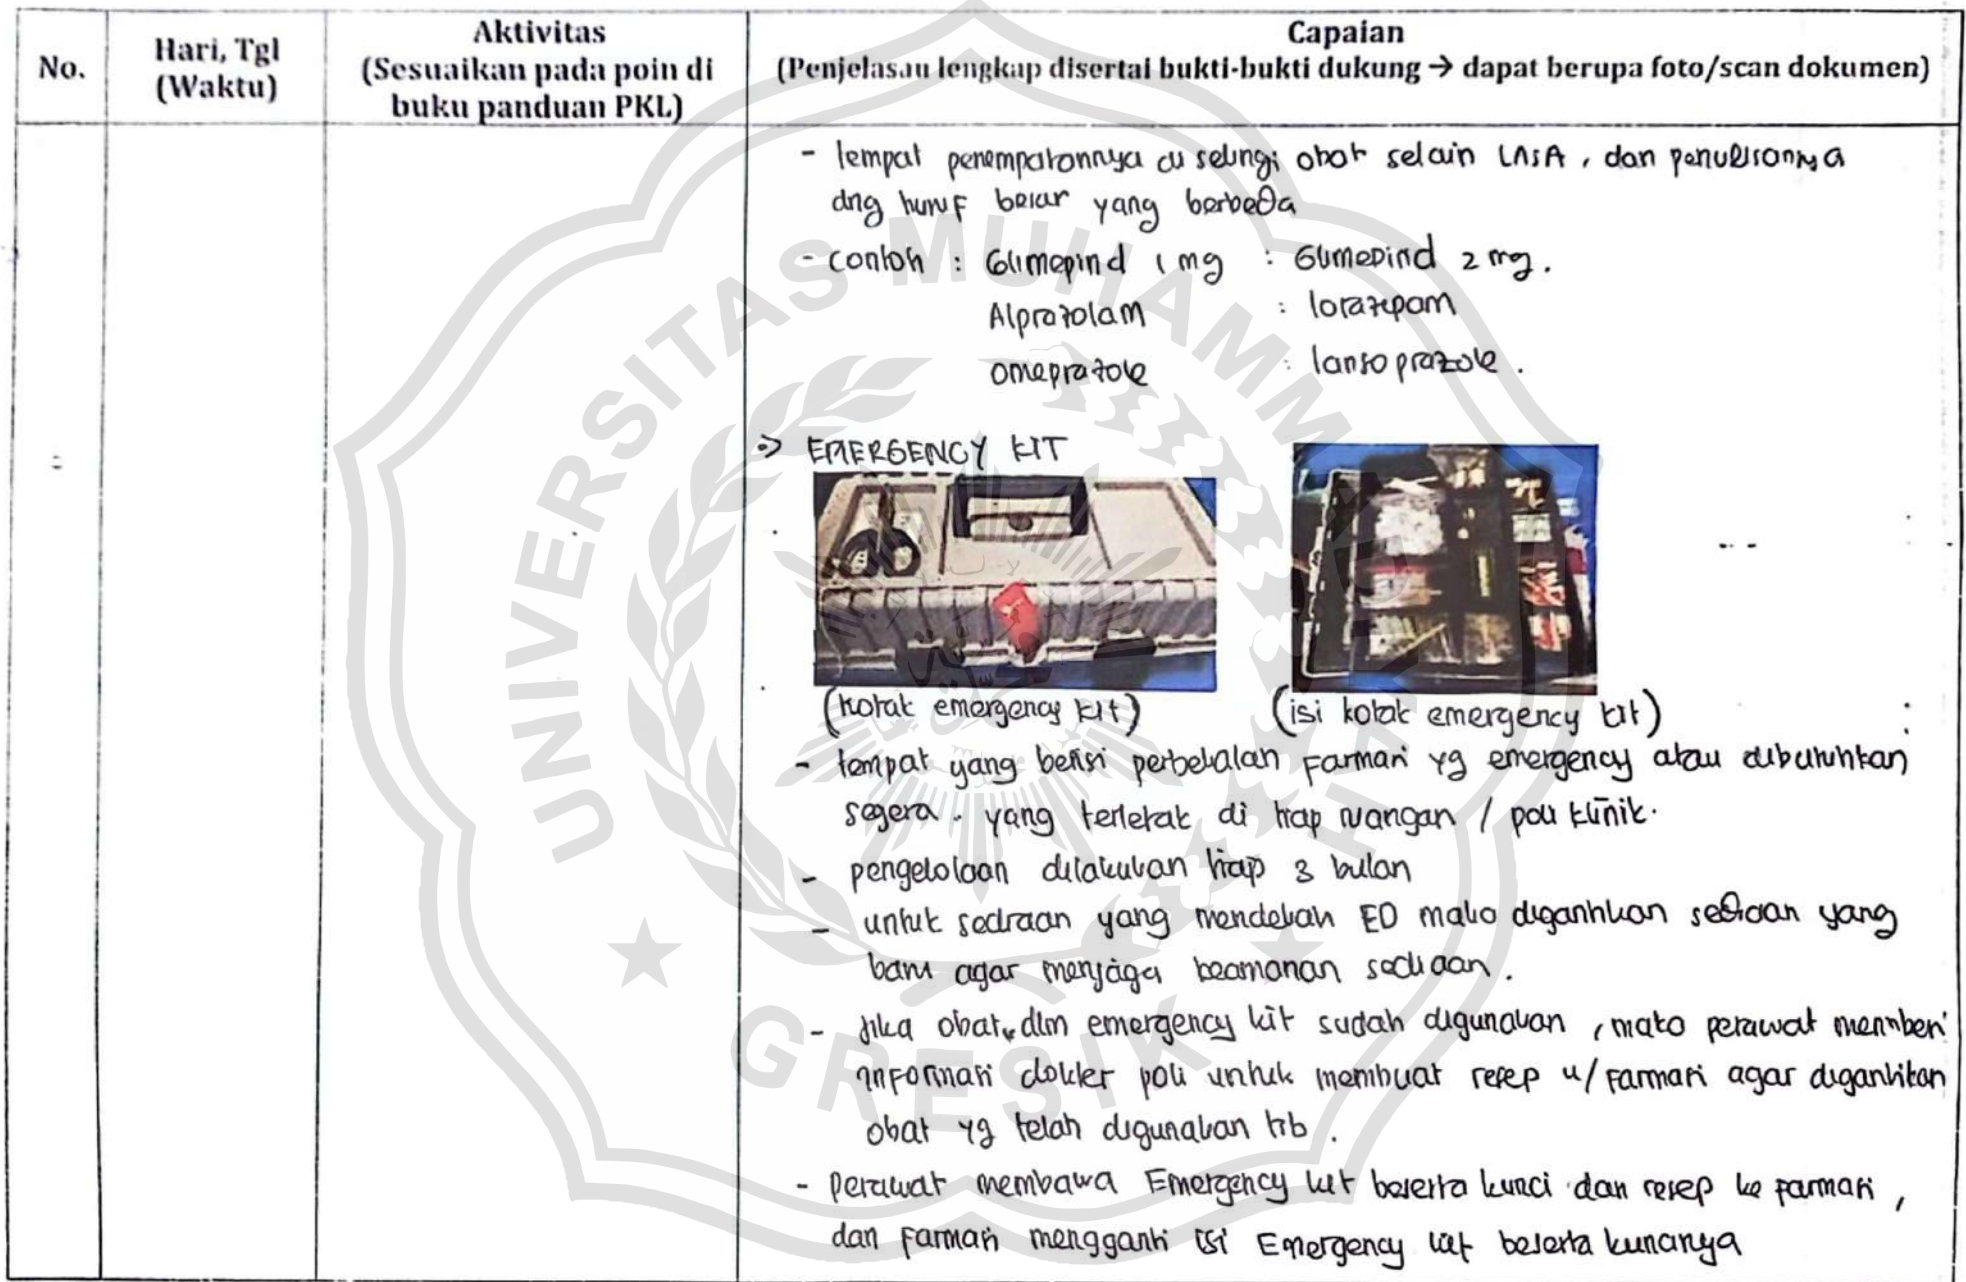 No.
Hari, Tgl
(Waktu)
Aktivitas
(Sesuaikan pada poin di
buku panduan PKL)
Capaian
(Penjelasan lengkap disertai bukti-bukti dukung → dapat berupa foto/scan dokumen)
- tempat penempatannya di selingi obat selain LASA, dan penulisannya
dng huruf besar yang berbeda
- contoh : Glimepirid 1 mg : Glimepirid 2 mg.
Alprazolam : lorazepam
omeprazole : lansoprazole.
=> EMERGENCY KIT
(kotak emergency kit)
(isi kotak emergency kit)
- tempat yang berisi perbekalan farmasi yg emergency atau dibutuhkan
segera. yang terletak di tiap ruangan / poli klinik.
- pengelolaan dilakukan tiap 3 bulan
- untuk sediaan yang mendekati ED maka digantikan sediaan yang
baru agar menjaga keamanan sediaan.
- jika obat dlm emergency kit sudah digunakan, maka perawat memberi
informasi dokter poli untuk membuat resep u/ farmasi agar digantikan
obat yg telah digunakan tsb.
- perawat membawa Emergency kit beserta kunci dan resep ke farmasi,
dan farmasi mengganti isi Emergency kit beserta kuncinya
UNIVERSITAS MUHAMMADIYAH
GRESIK